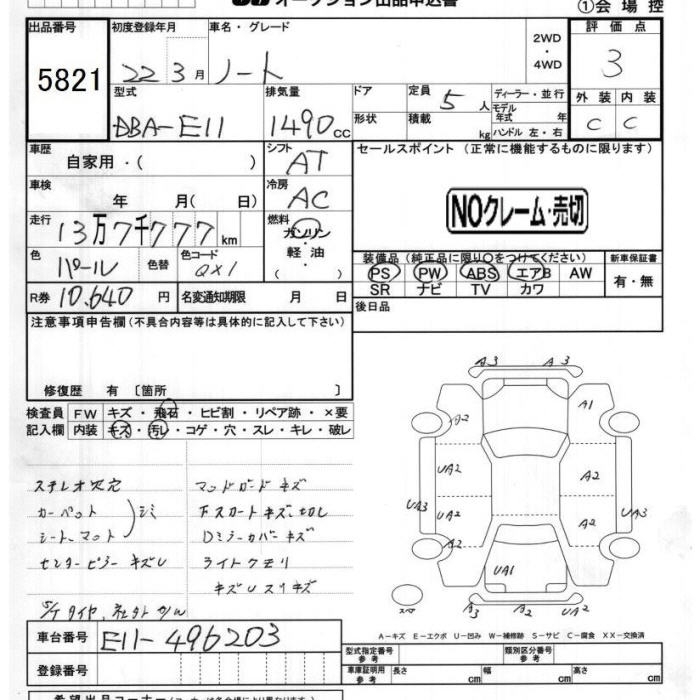 オークション出品申込書
①会場控
出品番号 初度登録年月 車名・グレード 2WD・4WD 評価点
5821 22 3月 ノート 3
型式 排気量 ドア 形状 定員 5人 積載 kg ディーラー・並行 モデル年式 年 ハンドル 左・右 外装 内装
DBA-E11 1490cc C C
車歴 自家用・( ) シフト AT セールスポイント (正常に機能するものに限ります)
車検 年 月( 日) 冷房 AC NOクレーム・売切
走行 13万7千777km 燃料 ガソリン・軽油
色 パール 色替 色コード QX1 装備品 (純正品に限り○をつけてください) 新車保証書
PS PW ABS エアB AW 有・無
SR ナビ TV カワ
R券 10,640円 名変通知期限 月 日 後日品
注意事項申告欄(不具合内容等は具体的に記入して下さい)
修復歴 有 〔箇所 〕
検査員 FW キズ・飛石・ヒビ割・リペア跡・×要
記入欄 内装 キズ・汚レ・コゲ・穴・スレ・キレ・破レ
A3 A3
A2 A1
UA2 A2
UA3 UA2 A2 UA3
A2
UA1
A3 A2 UA2
ステレオ欠穴 マッドガードキズ
カーペット シミ
シートマット
Dミラーカバーキズ
ライトクモリ
A-キズ E-エクボ U-凹み W-補修跡 S-サビ C-腐食 XX-交換済
車台番号 E11-496203 型式指定番号 参考 類別区分番号 参考
登録番号 車庫証明用 参考 長さ cm 幅 cm 高さ cm